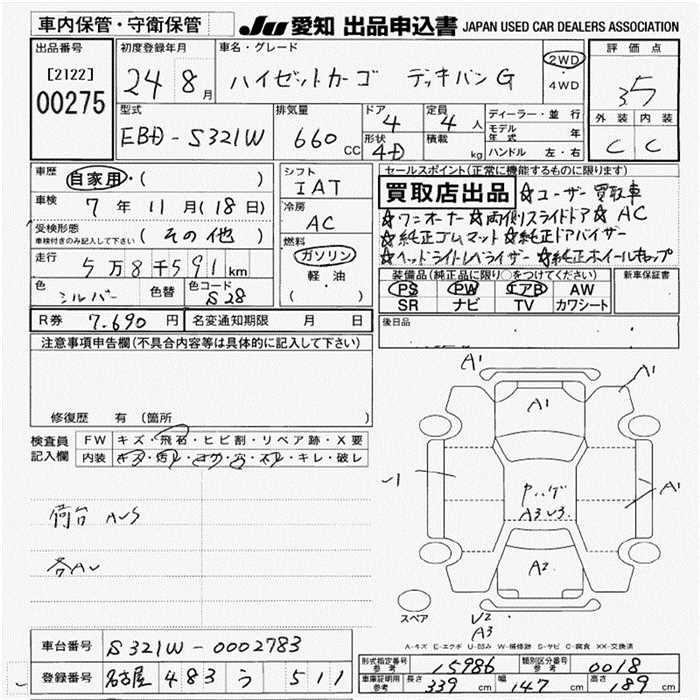 車内保管・守衛保管
JU 愛知 出品申込書 JAPAN USED CAR DEALERS ASSOCIATION
出品番号 初度登録年月 車名・グレード 評価点
[2122] 24年 8月 ハイゼットカーゴ デッキバンG 2WD・4WD 3.5
00275
型式 排気量 ドア 定員 ディーラー・並行 外装 内装
EBD-S321W 660CC 4 4人 モデル年式 年 C C
形状 積載 kg ハンドル 左・右
4D
車歴 自家用・( ) シフト セールスポイント(正常に機能するものに限ります)
IAT 買取店出品 ☆ユーザー買取車
車検 7年 11月(18日) 冷房 ☆ワンオーナー☆両側スライドドア☆AC
AC ☆純正ゴムマット☆純正ドアバイザー
受検形態 (その他) 燃料 ☆ヘッドライトレベライザー☆純正ホイールキャップ
車検付きのみ記入して下さい ガソリン
走行 5万8千591km 軽・油 装備品(純正品に限り○をつけてください) 新車保証書
( ) PS PW エアB AW
色 シルバー 色替 色コード S28 SR ナビ TV カワシート
R券 7,690円 名変通知期限 月 日 後日品
注意事項申告欄(不具合内容等は具体的に記入して下さい)
修復歴 有(箇所 )
検査員記入欄 FW キズ・飛石・ヒビ割・リペア跡・X要
内装 キズ・汚レ・コゲ・穴・スレ・キレ・破レ
A1 A1
A1
A1
ハゲ
A3 U3
A2
荷台 AUS
各AU
スペア
U2
A3
A-キズ E-エクボ U-凹み W-補修跡 S-サビ C-腐食 XX-交換済
車台番号 S321W-0002783
型式指定番号 参考 15986 類別区分番号 参考 0018
登録番号 名古屋 483 う 511
車庫証明用 参考 長さ 339cm 幅 147cm 高さ 189cm